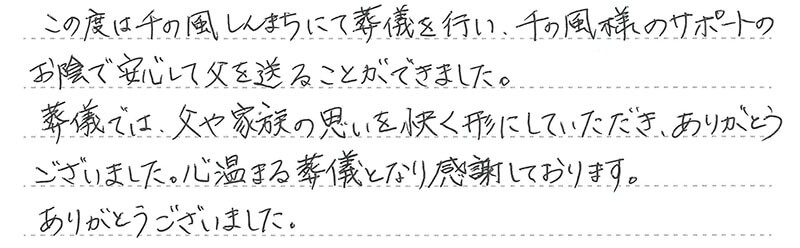 この度は千の風しんまちにて葬儀を行い、千の風様のサポートの
お陰で安心して父を送ることができました。
葬儀では、父や家族の思いを快く形にしていただき、ありがとう
ございました。心温まる葬儀となり感謝しております。
ありがとうございました。